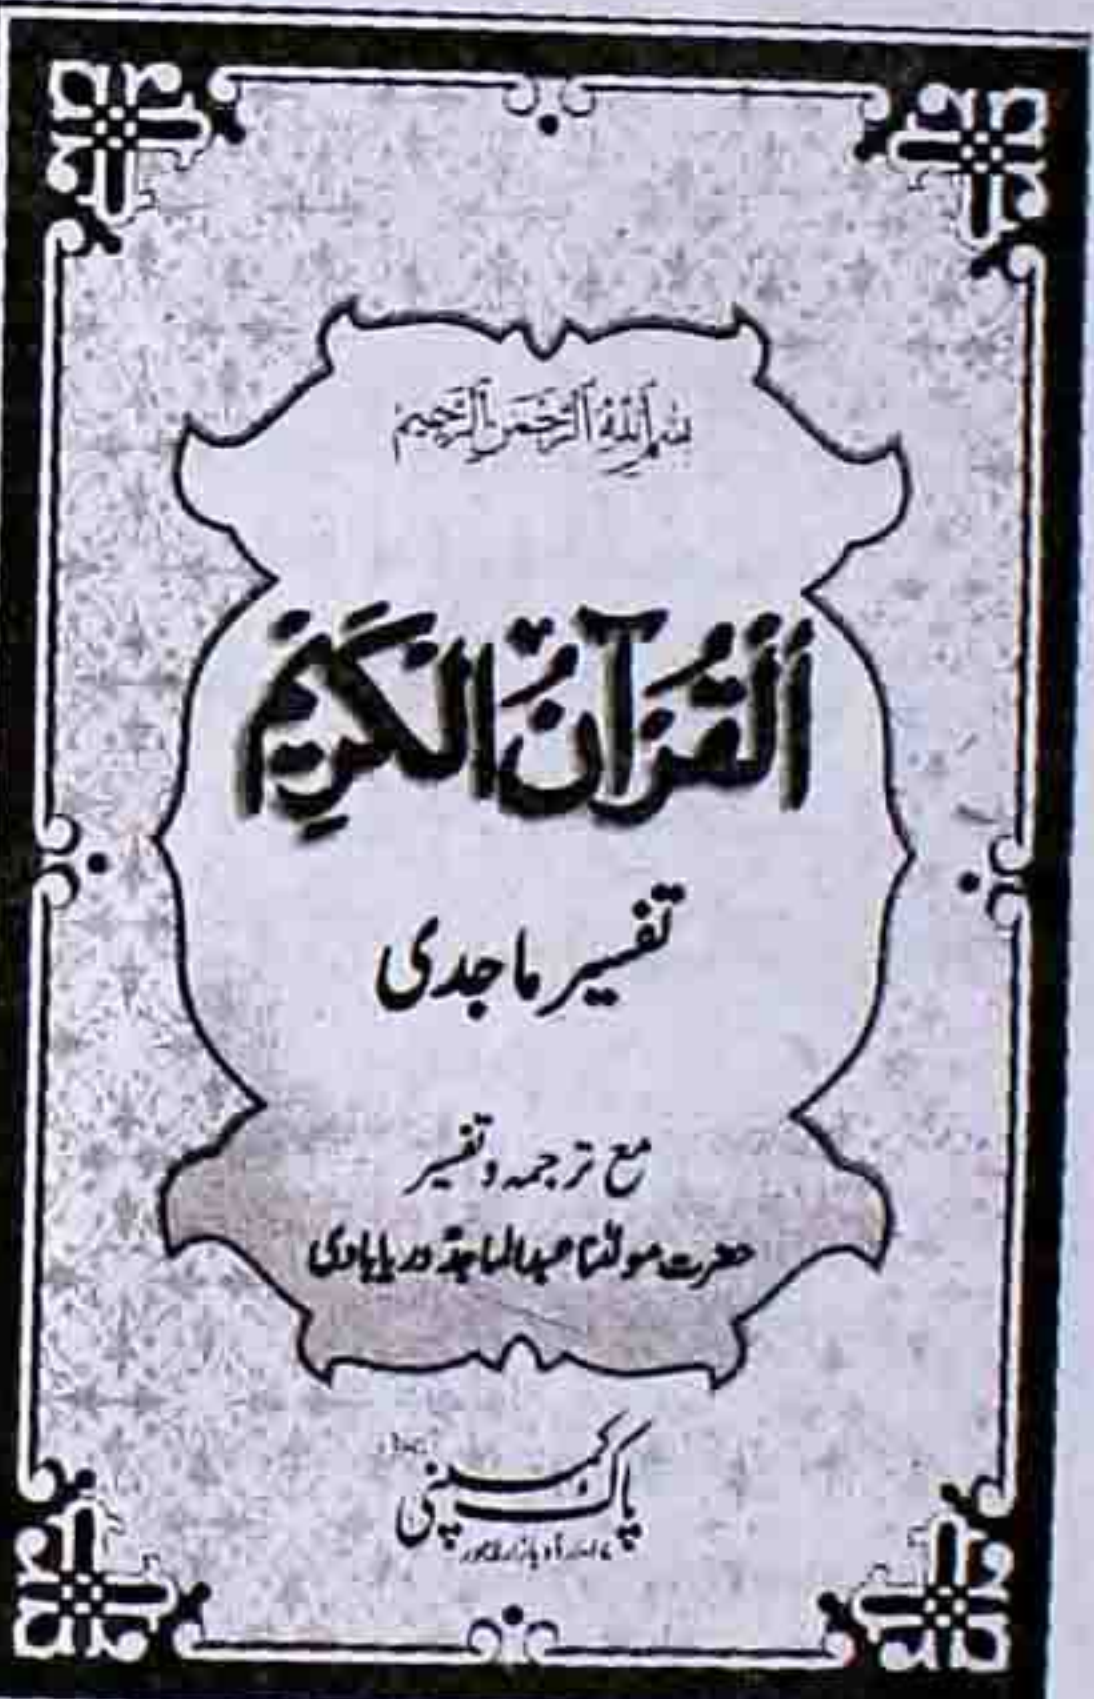 بسم الله الرحمن الرحيم
اَلْقُرْآنُ الْكَرِيْم
تفسیر ماجدی
مع ترجمہ و تفسیر
حضرت مولانا عبدالماجد دریابادی
پاک کمپنی
۱۷ اردو بازار لاہور